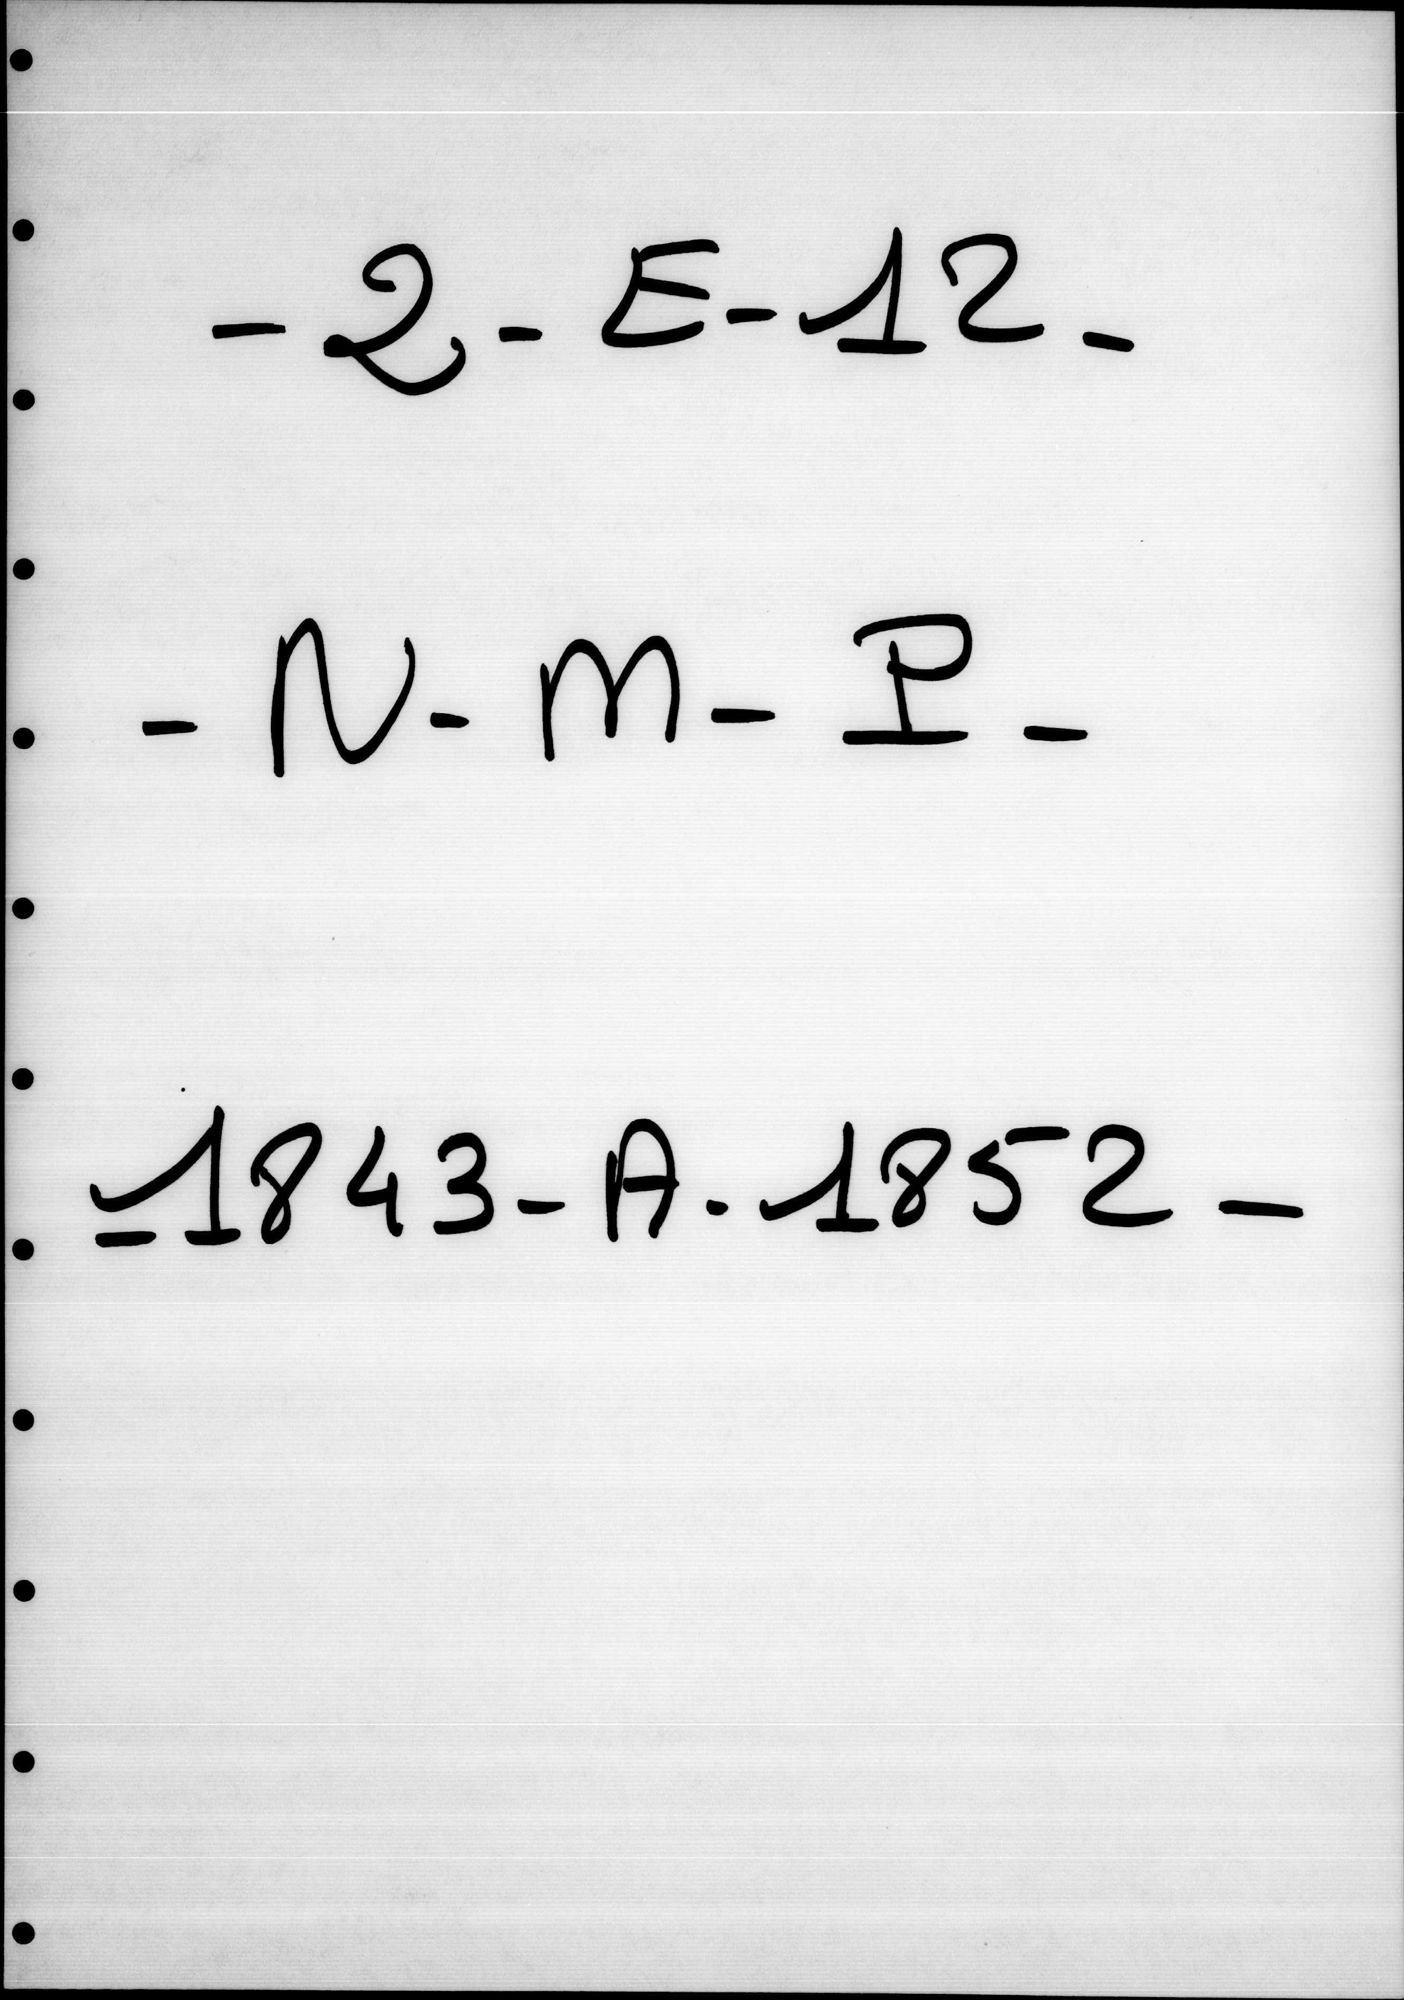 - 2 - E - 12 -
- N - M - P -
- 1843 - A - 1852 -